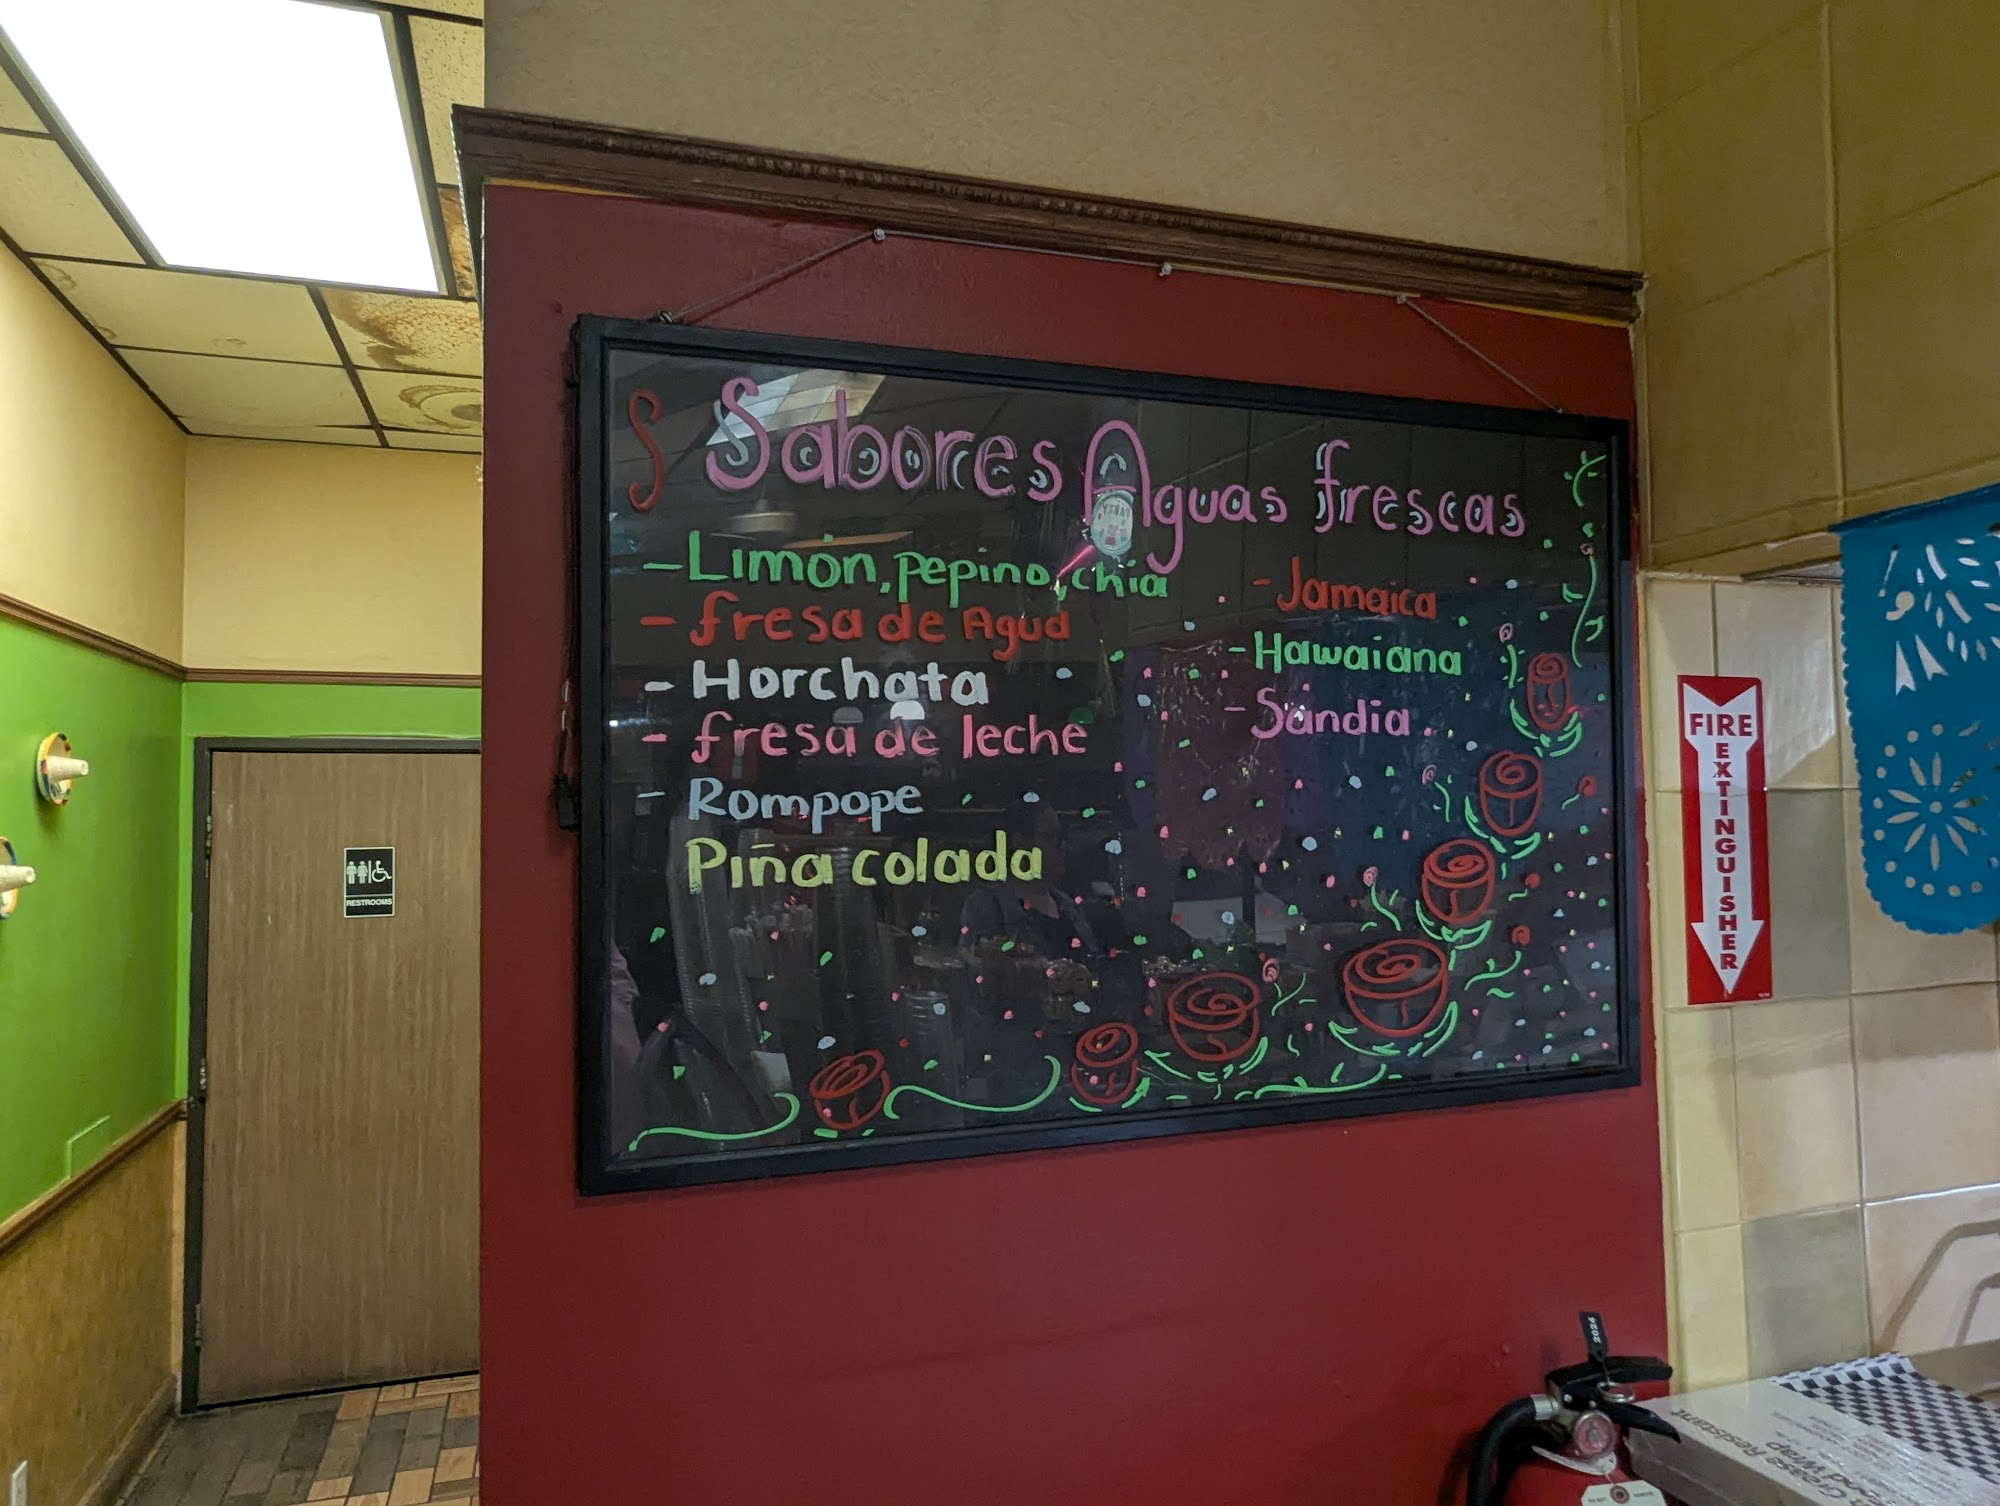 Sabores Aguas frescas
- Limón, pepino, chía
- fresa de Agua
- Horchata
- fresa de leche
- Rompope
Piña colada
- Jamaica
- Hawaiana
- Sandia.
RESTROOMS
FIRE
EXTINGUISHER
2024
Grease Resistant